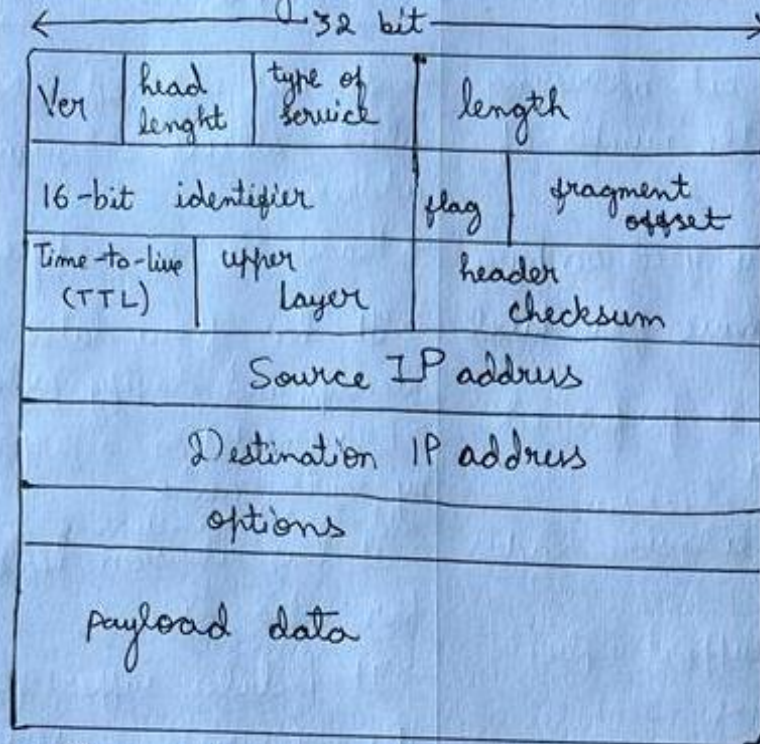 32 bit
Ver head lenght type of service length
16-bit identifier flag fragment offset
Time-to-live (TTL) upper Layer header checksum
Source IP address
Destination IP address
options
payload data